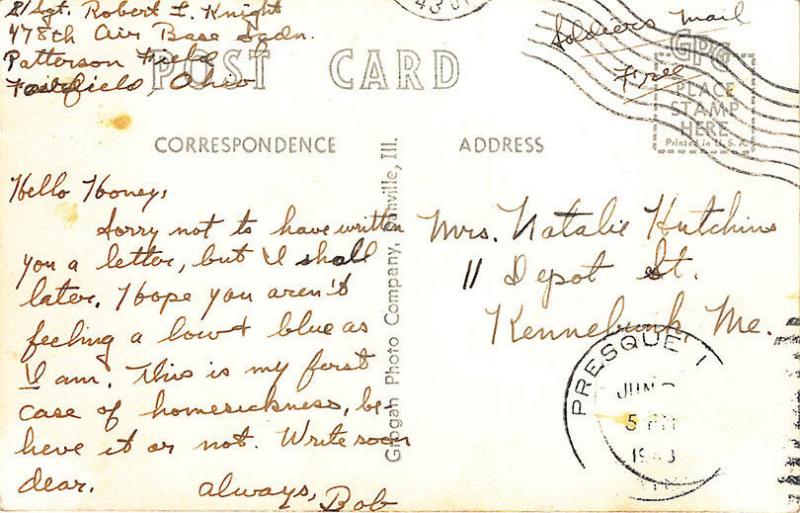 S/Sgt. Robert L. Knight
478th Air Base Sqdn.
Patterson Field
Fairfield, Ohio
Soldiers Mail
Free
POST CARD
GPC
PLACE
STAMP
HERE
Printed in U.S.A.
CORRESPONDENCE
ADDRESS
Hello Honey,
Sorry not to have written
you a letter, but I shall
later. Hope you aren't
feeling a low & blue as
I am. This is my first
case of homesickness, be
lieve it or not. Write soon
dear.
always, Bob
Grogan Photo Company, Danville, Ill.
Mrs. Natalie Hutchins
11 Depot St.
Kennebunk, Me.
PRESQUE I
JUN
5 PM
1943